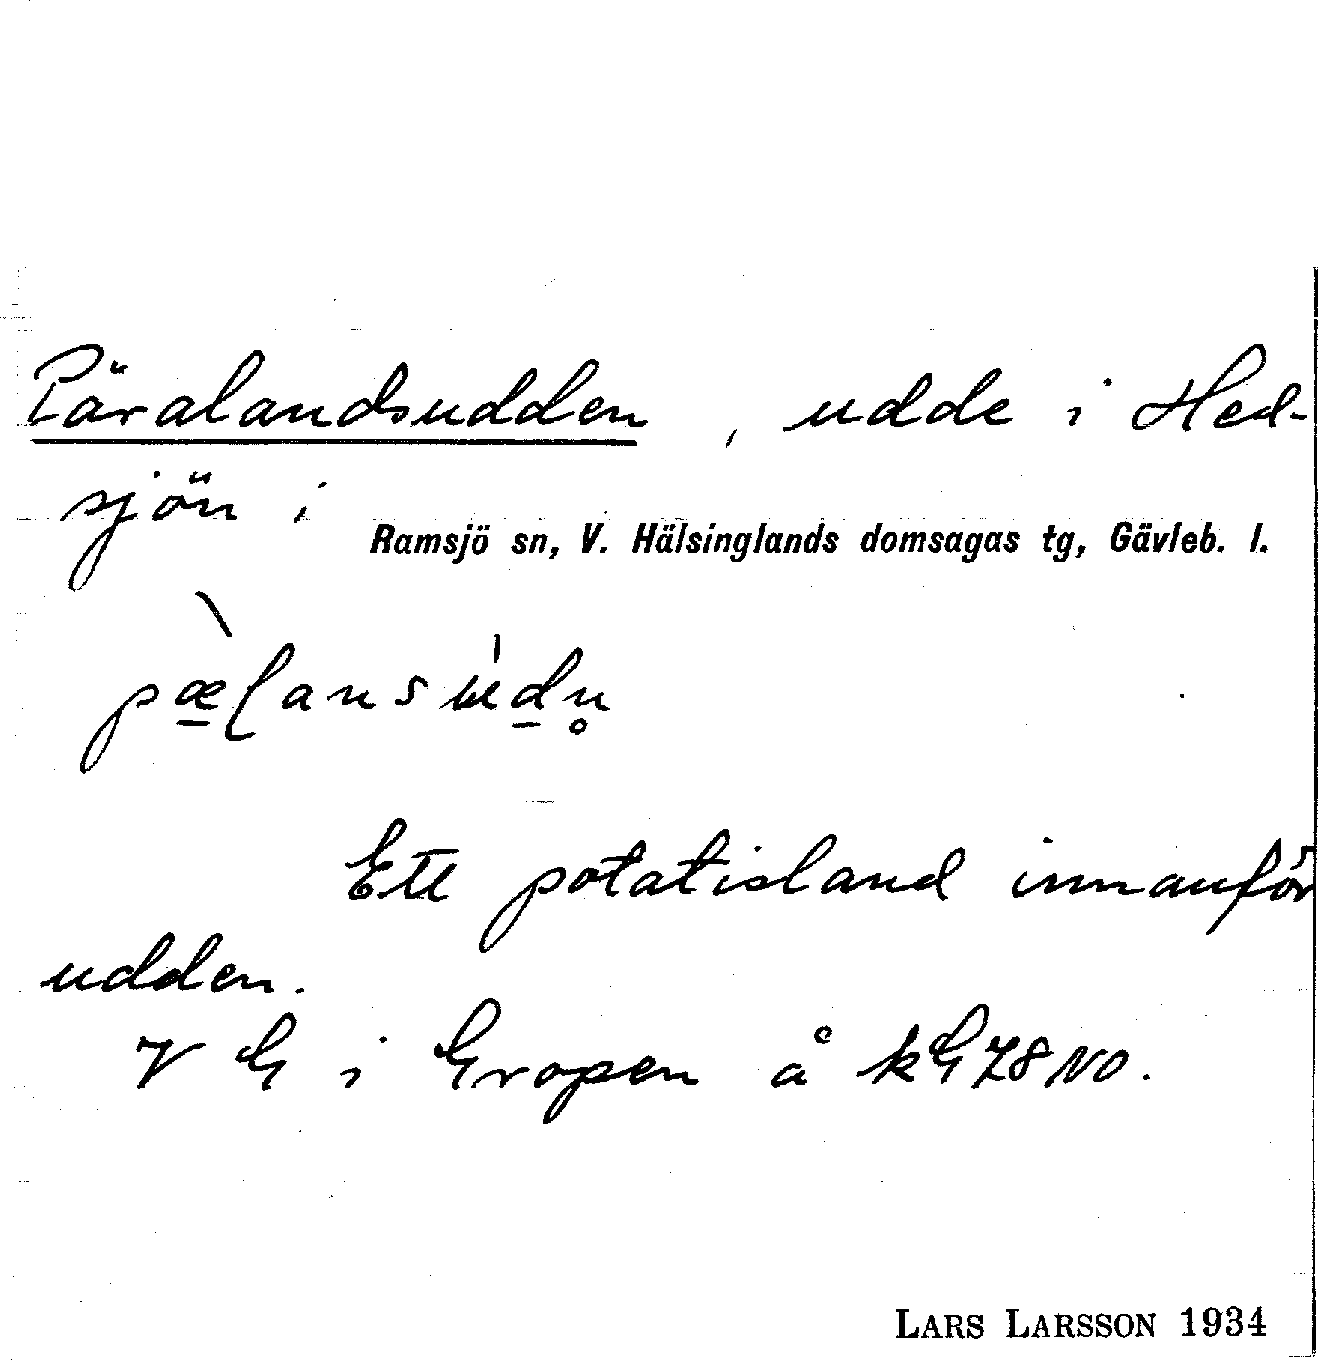 Päralandsudden, udde i Hed-
sjön i
Ramsjö sn, V. Hälsinglands domsagas tg, Gävleb. l.
Ett potatisland innanför
udden.
V G i Gropen å kG 78 NO.
LARS LARSSON 1934